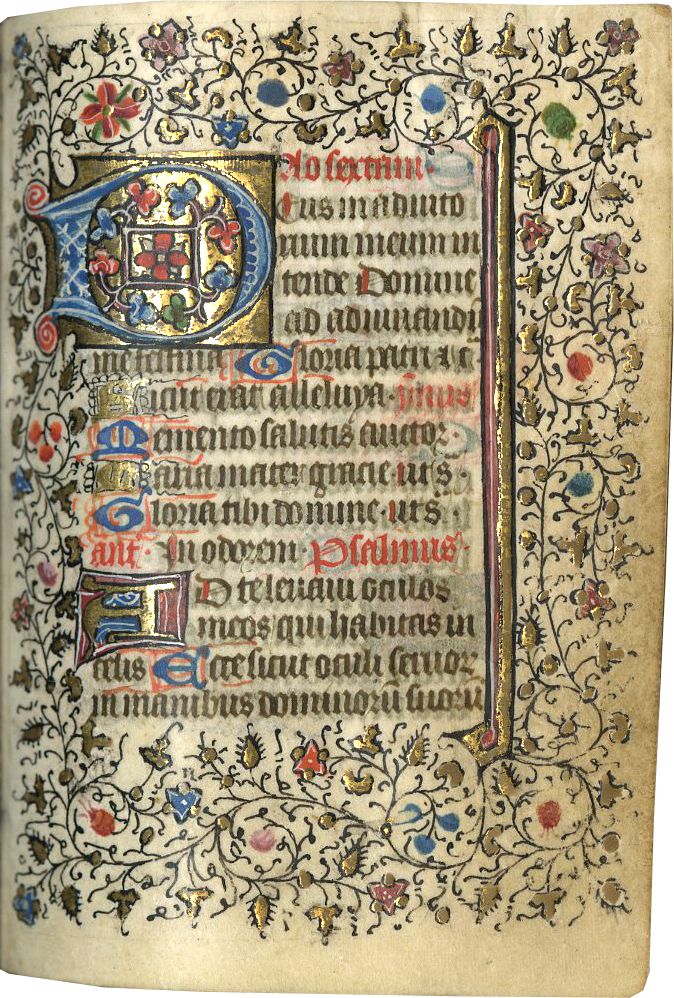 Ad sextam.
Deus in adiuto
rium meum in
tende Domine
ad adiuuandū
me festina Gloria patri ut
Sicut erat alleluya. ymus
Memento salutis auctor.
Maria mater gracie. ut s.
Gloria tibi domine. ut s.
ant. In odorem. Psalmus.
AD te leuaui oculos
meos qui habitas in
celis Ecce sicut oculi seruor
in manibus dominorū suorū